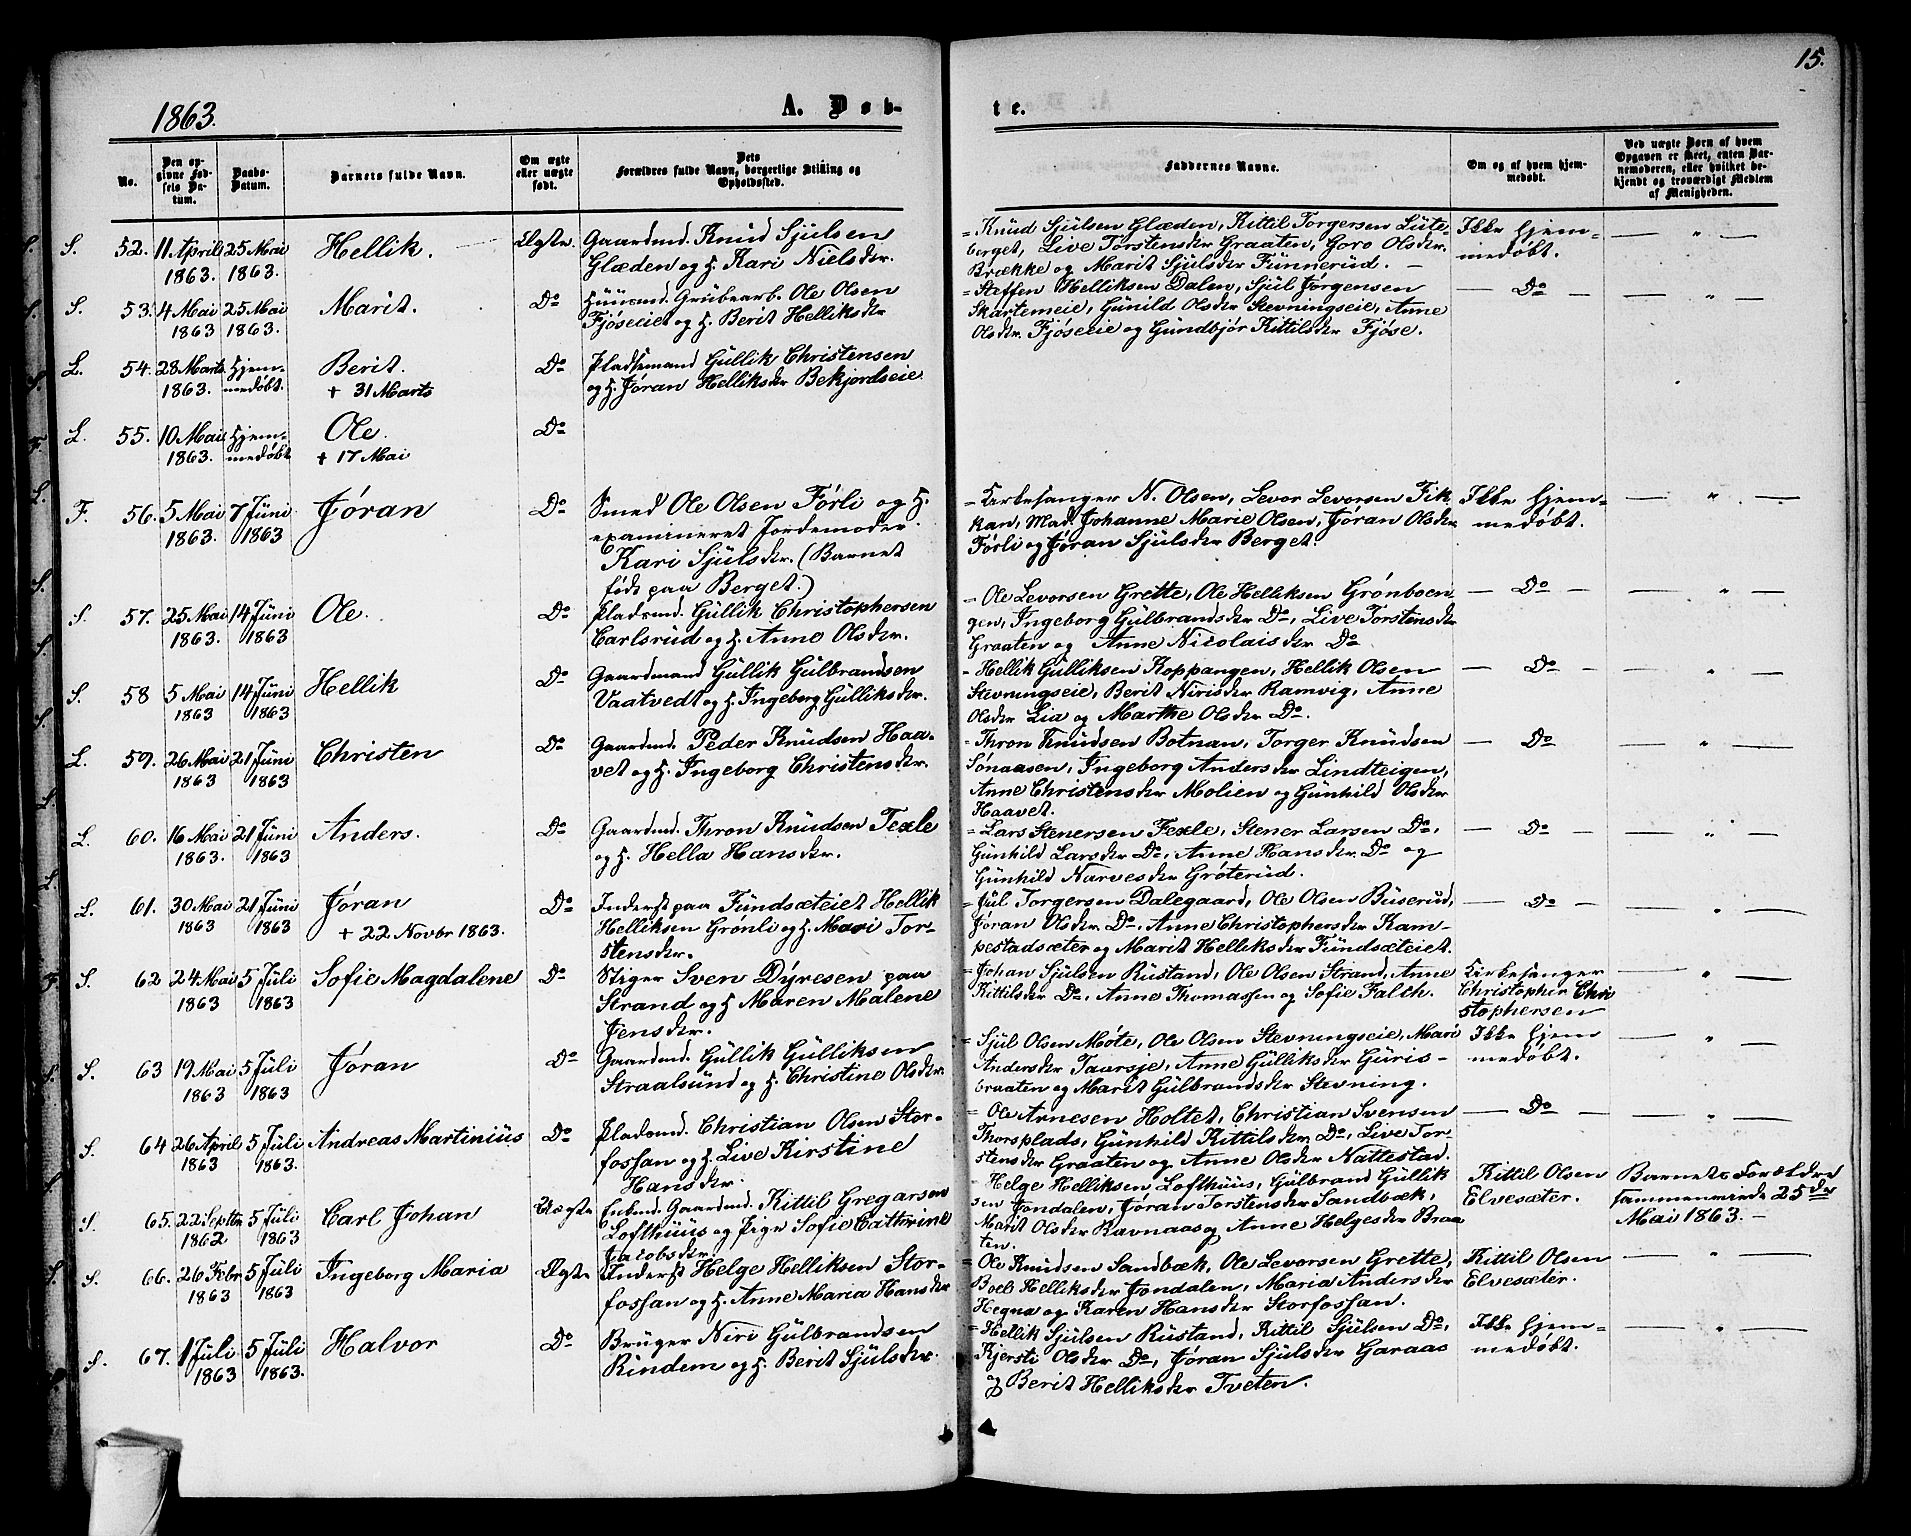 15.
1863.
A. Døb-
te.
No.
Den op-
givne Fød-
sels Da-
tum.
Daabs-
Datum.
Barnets fulde Navn.
Om ægte
eller uægte
født.
Dets
Forældres fulde Navn, borgerlige Stilling og
Opholdssted.
Faddernes Navne.
Om og af hvem hjem-
medøbt.
Ved uægte Børn af hvem
Opgaven er skeet, enten Bar-
nemoderen, eller hvilket be-
kjendt og troværdigt Medlem
af Menigheden.
S. 52. 11 April 1863. 25 Mai 1863. Hellik. Ægte. Gaardmd. Knud Sjulsen
Glæden og H. Kari Nielsdr.
= Knud Sjulsen Glæden, Kittil Torgersen Lüte-
berget, Live Torstensdr Graaten, Goro Olsdr.
Brække og Marit Sjulsdr Funnerud. –
Ikke hjem-
medøbt.
S. 53. 4 Mai 1863 25 Mai 1863. Marit. Do Huusmd. Grubearb. Ole Olsen
Fjøseeie og H. Berit Helliksdr
= Steffen Helliksen Dalen, Sjul Jørgensen
Skartemeie, Gunild Olsdr Stevningseie, Anne
Olsdr. Fjøseeie og Gundbjør Kittilsdr Fjøse.
— Do —
L. 54. 28 Marts 1863. Hjem-
medøbt. Berit.
+ 31 Marts
Do Pladsemand Gullik Christensen
og H. Jøran Helliksdr Bekjordseie
L. 55. 10 Mai 1863. Hjem-
medøbt Ole.
+ 17 Mai
Do
F. 56. 5 Mai 1863. 7 Juni 1863 Jøran Do Smed Ole Olsen Førli og H.
examineret Jordemoder
Kari Sjulsdr. (Barnet
født paa Berget.)
= Kirkesanger N. Olsen, Levor Levorsen Fik
kan, Mad. Johanne Marie Olsen, Jøran Olsdr
Førli og Jøran Sjulsdr Berget.
Ikke hjem-
medøbt.
S. 57. 25 Mai 1863. 14 Juni 1863 Ole. Do Pladsmd. Gullik Christophersen
Carlsrud og H. Anne Olsdr.
= Ole Levorsen Grette, Ole Helliksen Grønboen
gen, Ingeborg Gulbrandsdr Do, Live Torstensdr
Graaten og Anne Nicolaisdr Do
— Do —
S. 58 5 Mai 1863 14 Juni 1863 Hellik Do Gaardmand Gullik Gulbrandsen
Vaatvedt og H. Ingeborg Gulliksdr.
= Hellik Gulliksen Koppangen, Hellik Olsen
Stevningseie, Berit Nirisdr Ramvig, Anne
Olsdr Lia og Marthe Olsdr Do.
— Do —
L. 59. 26 Mai 1863 21 Juni 1863 Christen Do Gaardmd. Peder Knudsen Haa-
vet og H. Ingeborg Christensdr.
= Thron Knudsen Botnan, Torger Knudsen
Sønaasen, Ingeborg Andersdr Lindteigen,
Anne Christensdr Molien og Gunhild Olsdr
Haavet.
— Do —
L. 60. 16 Mai 1863. 21 Juni 1863 Anders. Do Gaardmd. Thron Knudsen Texle
og H. Hella Hansdr.
= Lars Stenersen Texle, Stener Larsen Do,
Gunhild Larsdr Do, Anne Hansdr. Do og
Gunhild Narvesdr Grøterud.
— Do —
L. 61. 30 Mai 1863 21 Juni 1863 Jøran
+ 22 Novbr 1863.
Do Inderst paa Fundsæteiet Hellik
Helliksen Grønli og H. Mari Tor-
stensdr.
= Jul Torgersen Dalegaard, Ole Olsen Buserud,
Jøran Olsdr. Do, Anne Christophersdr Kam-
pestadsæter og Marit Helliksdr Fundsæteiet.
— Do —
S. 62 24 Mai 1863 5 Juli 1863 Sofie Magdalene Do Stiger Sven Dyresen paa
Strand og H. Maren Malene
Jensdr.
= Johan Sjulsen Rustand, Ole Olsen Strand, Anne
Kittilsdr Do, Anne Thomassen og Sofie Falch.
Kirkesanger
Christopher Chri
stophersen
S. 63 19 Mai 1863 5 Juli 1863 Jøran Do Gaardmd. Gullik Gulliksen
Straalsund og H. Christine Olsdr.
= Sjul Olsen Møte, Ole Olsen Stevningseie, Mari
Andersdr Taarsje, Anne Gulliksdr Guris-
braaten og Marit Gulbrandsdr Stevning.
Ikke hjem
medøbt.
S. 64 26 April 1863 5 Juli 1863. Andreas Martinius Do Pladsmd. Christian Olsen Stor-
fossan og H. Live Kirstine
Hansdr.
= Ole Arnesen Holtet, Christian Svensen
Thorsplads, Gunhild Kittilsdr Do, Live Tor-
stensdr Graaten og Anne Olsdr Nattestad.
— Do —
S. 65. 22 Septbr 1862 5 Juli 1863 Carl Johan Uægte Enkmd. Gaardmd. Kittil Gregarsen
Lofthuus og Pige Sofie Cathrine
Jacobsdr.
= Helge Helliksen Lofthuus, Gulbrand Gullik
sen Jondalen, Jøran Torstensdr Sandbæk,
Marit Olsdr Ravnaas og Anne Helgesdr Braa
ten.
Kittil Olsen
Elvesæter.
Barnets Forældre
sammenviede 25de
Mai 1863. –
S. 66. 26 Febr 1863 5 Juli 1863. Ingeborg Maria Ægte Inderst Helge Helliksen Stor-
fossan og H. Anne Maria Hansdr
= Ole Knudsen Sandbæk, Ole Levorsen Grette,
Boel Helliksdr Jondalen, Maria Andersdr
Hegna og Karen Hansdr Storfossan.
Kittil Olsen
Elvesæter.
S. 67. 1 Juli 1863 5 Juli 1863. Halvor Do Bruger Niri Gulbrandsen
Rindem og H. Berit Sjulsdr.
= Hellik Sjulsen Rustand, Kittil Sjulsen Do,
Kjersti Olsdr Do, Jøran Sjulsdr Garaas
og Berit Helliksdr Tveten.
Ikke hjem-
medøbt.